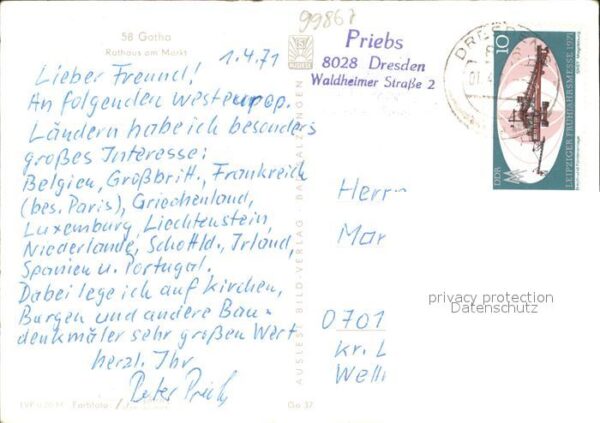 58 Gotha
Rathaus am Markt
1.4.71
Lieber Freund!
An folgenden westeurop.
Ländern habe ich besonders
großes Interesse:
Belgien, Großbrit., Frankreich
(bes. Paris), Griechenland,
Luxemburg, Liechtenstein,
Niederlande, Schottld., Irland,
Spanien u. Portugal.
Dabei lege ich auf Kirchen,
Burgen und andere Bau-
denkmäler sehr großen Wert.
herzl. Ihr
Peter Priebs
Go 37
AUSLESE-BILD-VERLAG BAD SALZUNGEN
99867
Priebs
8028 Dresden
Waldheimer Straße 2
DRESDEN
10
DDR
LEIPZIGER FRÜHJAHRSMESSE 1971
Herr
Mar
0701
Kr. L
Well
privacy protection
Datenschutz